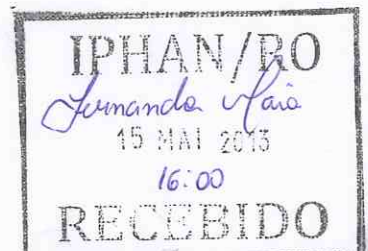 IPHAN/RO
Fernanda Maia
15 MAI 2013
16:00
RECEBIDO